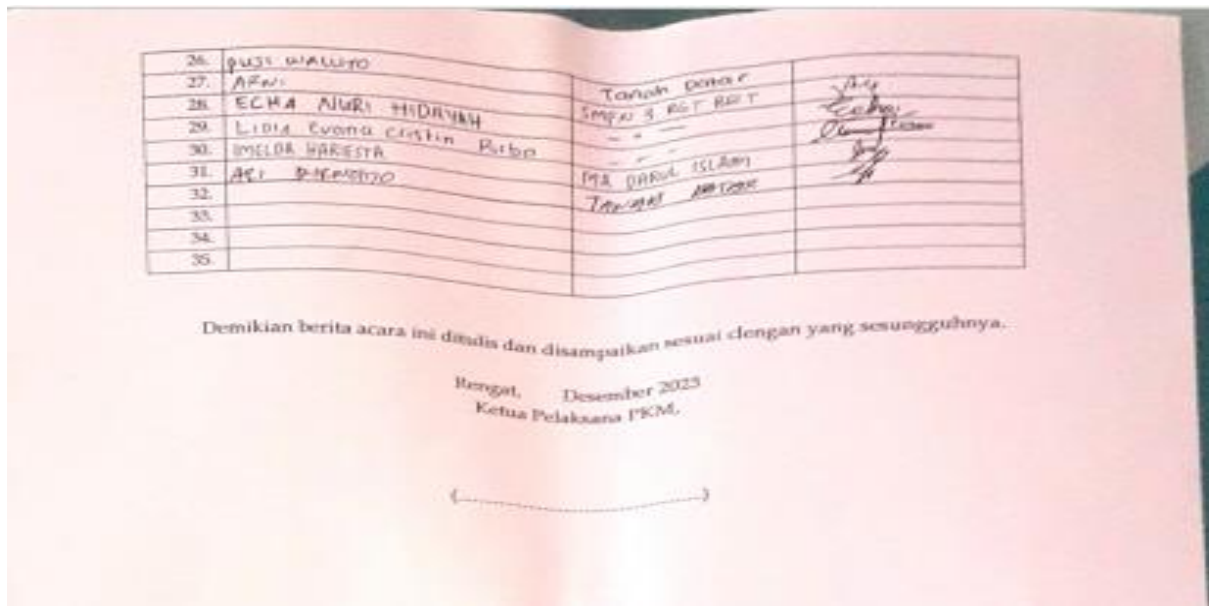 26. PUJI WALUYO
27. ARNI Tanah Datar
28. ECHA NURI HIDAYAH SMPN 3 RGT BRT
29. LIDIA Evana Cristin Purba - " -
30. IMELDA HARIESTA - " -
31. ARI MA DARUL ISLAM
32. TANAH DATAR
33.
34.
35.
Demikian berita acara ini ditulis dan disampaikan sesuai dengan yang sesungguhnya.
Rengat, Desember 2023
Ketua Pelaksana PKM,
(..............................................)